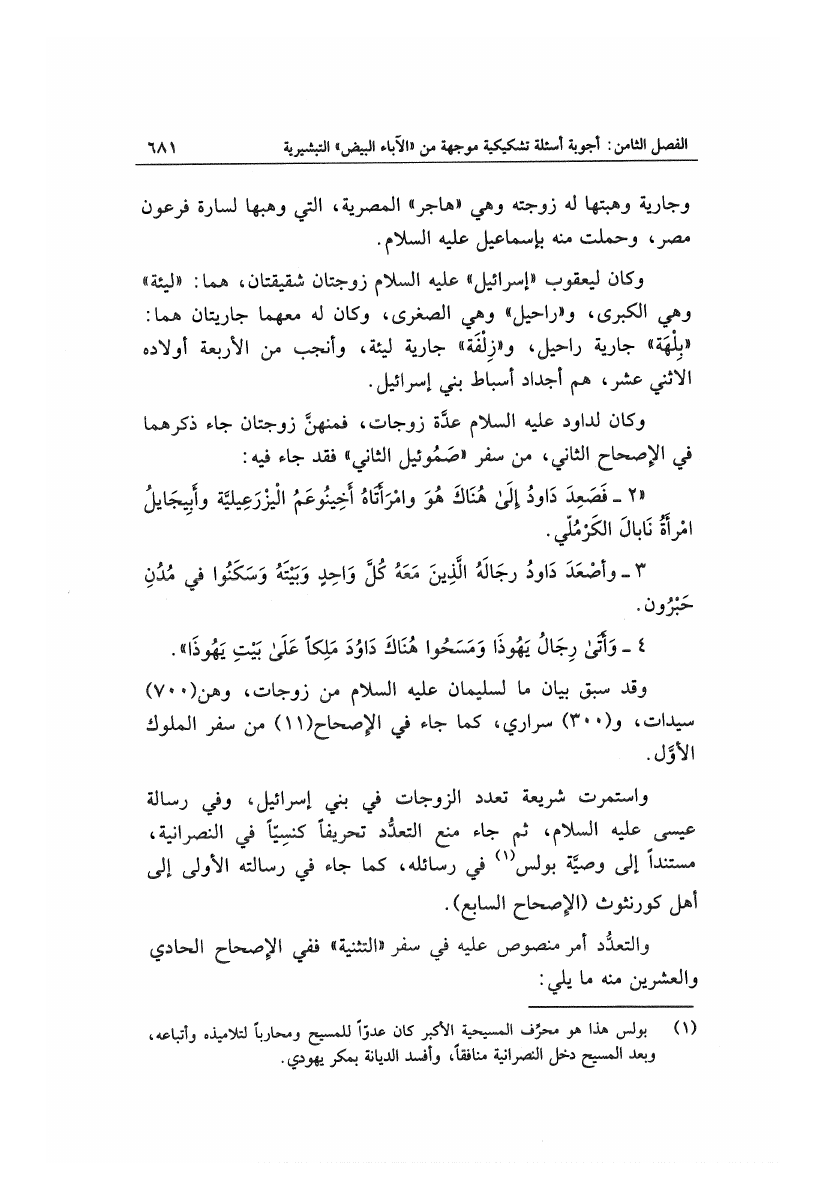 الفصل الثامن: أجوبة أسئلة تشكيكية موجهة من «الآباء البيض» التبشيرية ٦٨١
وجارية وهبتها له زوجته وهي «هاجر» المصرية، التي وهبها لسارة فرعون
مصر، وحملت منه بإسماعيل عليه السلام.
وكان ليعقوب «إسرائيل» عليه السلام زوجتان شقيقتان، هما: «ليئة»
وهي الكبرى، و«راحيل» وهي الصغرى، وكان له معهما جاريتان هما:
«بِلْهَة» جارية راحيل، و«زِلْفَة» جارية ليئة، وأنجب من الأربعة أولاده
الاثني عشر، هم أجداد أسباط بني إسرائيل.
وكان لداود عليه السلام عدَّة زوجات، فمنهنَّ زوجتان جاء ذكرهما
في الإصحاح الثاني، من سفر «صَمُوئيل الثاني» فقد جاء فيه:
«٢ ـ فَصَعِدَ دَاودُ إِلَىٰ هُنَاكَ هُوَ وامْرَأَتَاهُ أَخِينُوعَمُ الْيِزْرَعِيليَّة وأَبِيجَايلُ
امْرأَةُ نَابالَ الكَرْمُلّي.
٣ ـ وأصْعَدَ دَاودُ رجَالَهُ الَّذِينَ مَعَهُ كُلَّ وَاحِدٍ وَبَيْتَهُ وَسَكَنُوا في مُدُنِ
حَبْرُون.
٤ ـ وَأَتَىٰ رِجَالُ يَهُوذَا وَمَسَحُوا هُنَاكَ دَاوُدَ مَلِكاً عَلَىٰ بَيْتِ يَهُوذَا».
وقد سبق بيان ما لسليمان عليه السلام من زوجات، وهن(٧٠٠)
سيدات، و(٣٠٠) سراري، كما جاء في الإصحاح(١١) من سفر الملوك
الأوَّل.
واستمرت شريعة تعدد الزوجات في بني إسرائيل، وفي رسالة
عيسى عليه السلام، ثم جاء منع التعدُّد تحريفاً كنسِيّاً في النصرانية،
مستنداً إلى وصيَّة بولس(١) في رسائله، كما جاء في رسالته الأولى إلى
أهل كورنثوث (الإصحاح السابع).
والتعدُّد أمر منصوص عليه في سفر «التثنية» ففي الإصحاح الحادي
والعشرين منه ما يلي:
(١) بولس هذا هو محرِّف المسيحية الأكبر كان عدوّاً للمسيح ومحارباً لتلاميذه وأتباعه،
وبعد المسيح دخل النصرانية منافقاً، وأفسد الديانة بمكر يهودي.